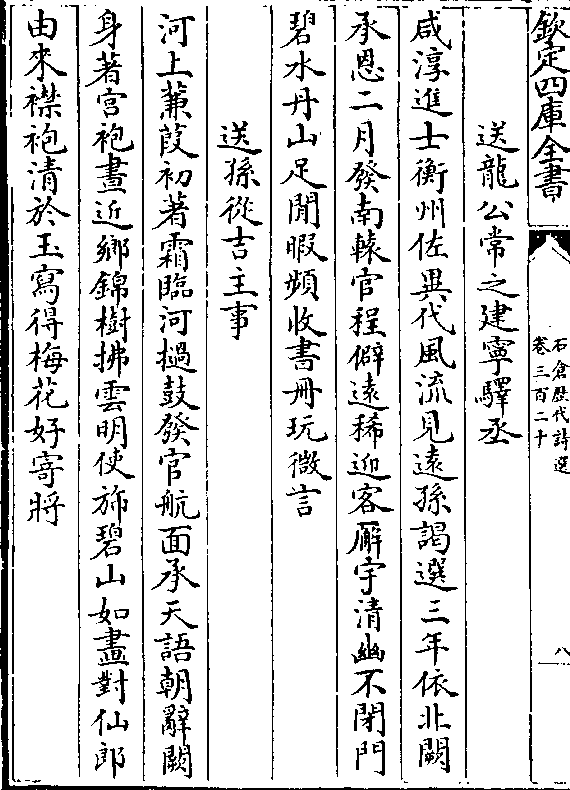 欽定四庫全書
石倉歷代詩選
卷三百二十
八
送龍公常之建寧驛丞
咸淳進士衡州佐異代風流見遠孫謁選三年依北闕
承恩二月發南轅官程僻遠稀迎客廨宇清幽不閉門
碧水丹山足閒暇頻收書冊玩微言
送孫從吉主事
河上蒹葭初著霜臨河撾鼓發官航面承天語朝辭闕
身著宫袍晝近鄉錦樹拂雲明使旆碧山如畫對仙郎
由來襟袍清於玉寫得梅花好寄將